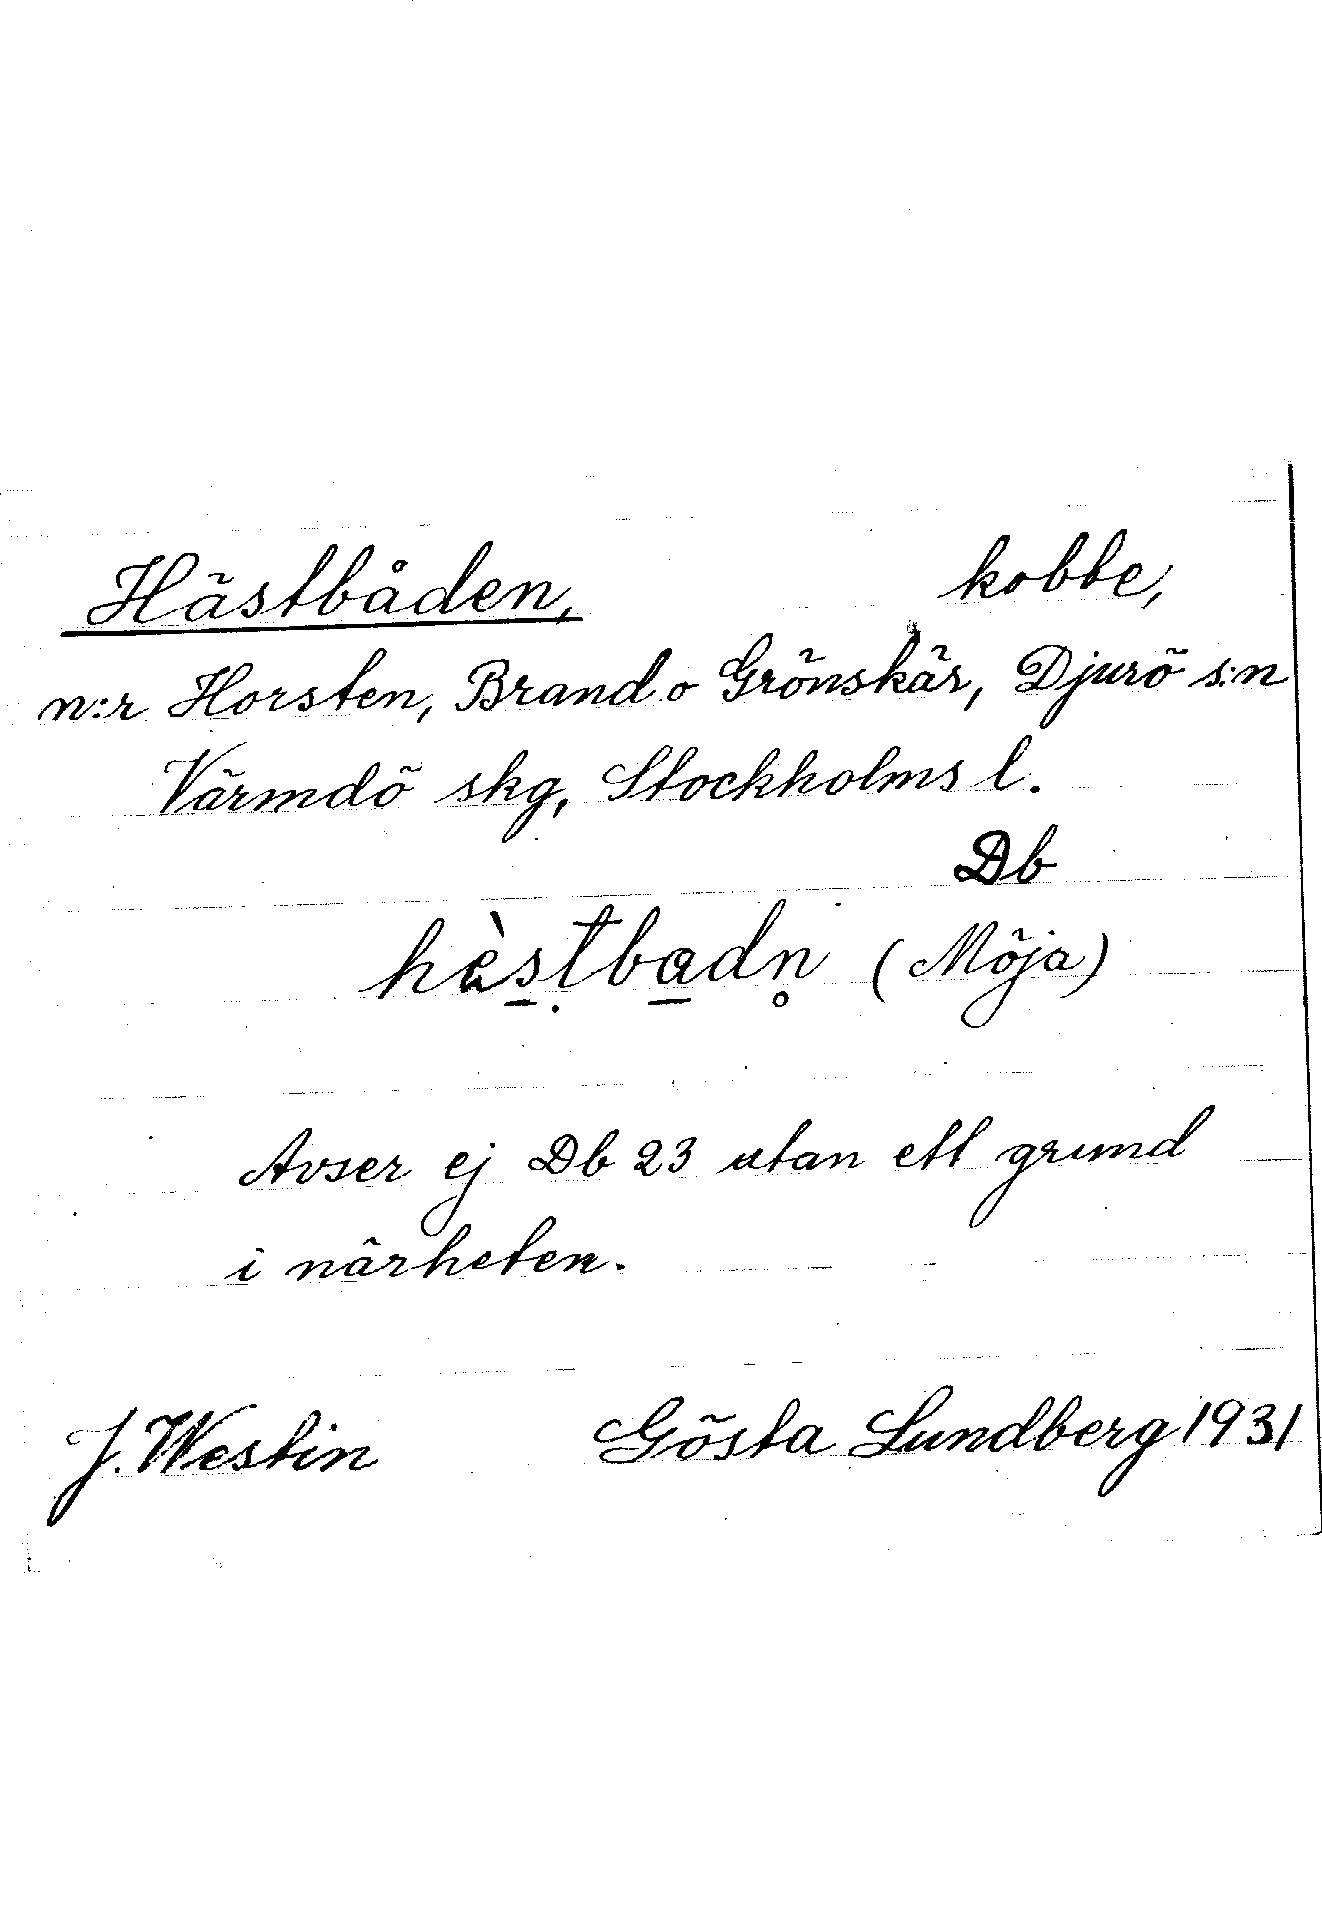 Hästbåden, kobbe,
n:r Horsten, Brand o Grönskär, Djurö s:n
Värmdö skg, Stockholms l.
Db
hɛ̀s̱ṭba̱dn̥ (Möja)
Avser ej Db 23 utan ett grund
i närheten.
J. Westin Gösta Lundberg 1931